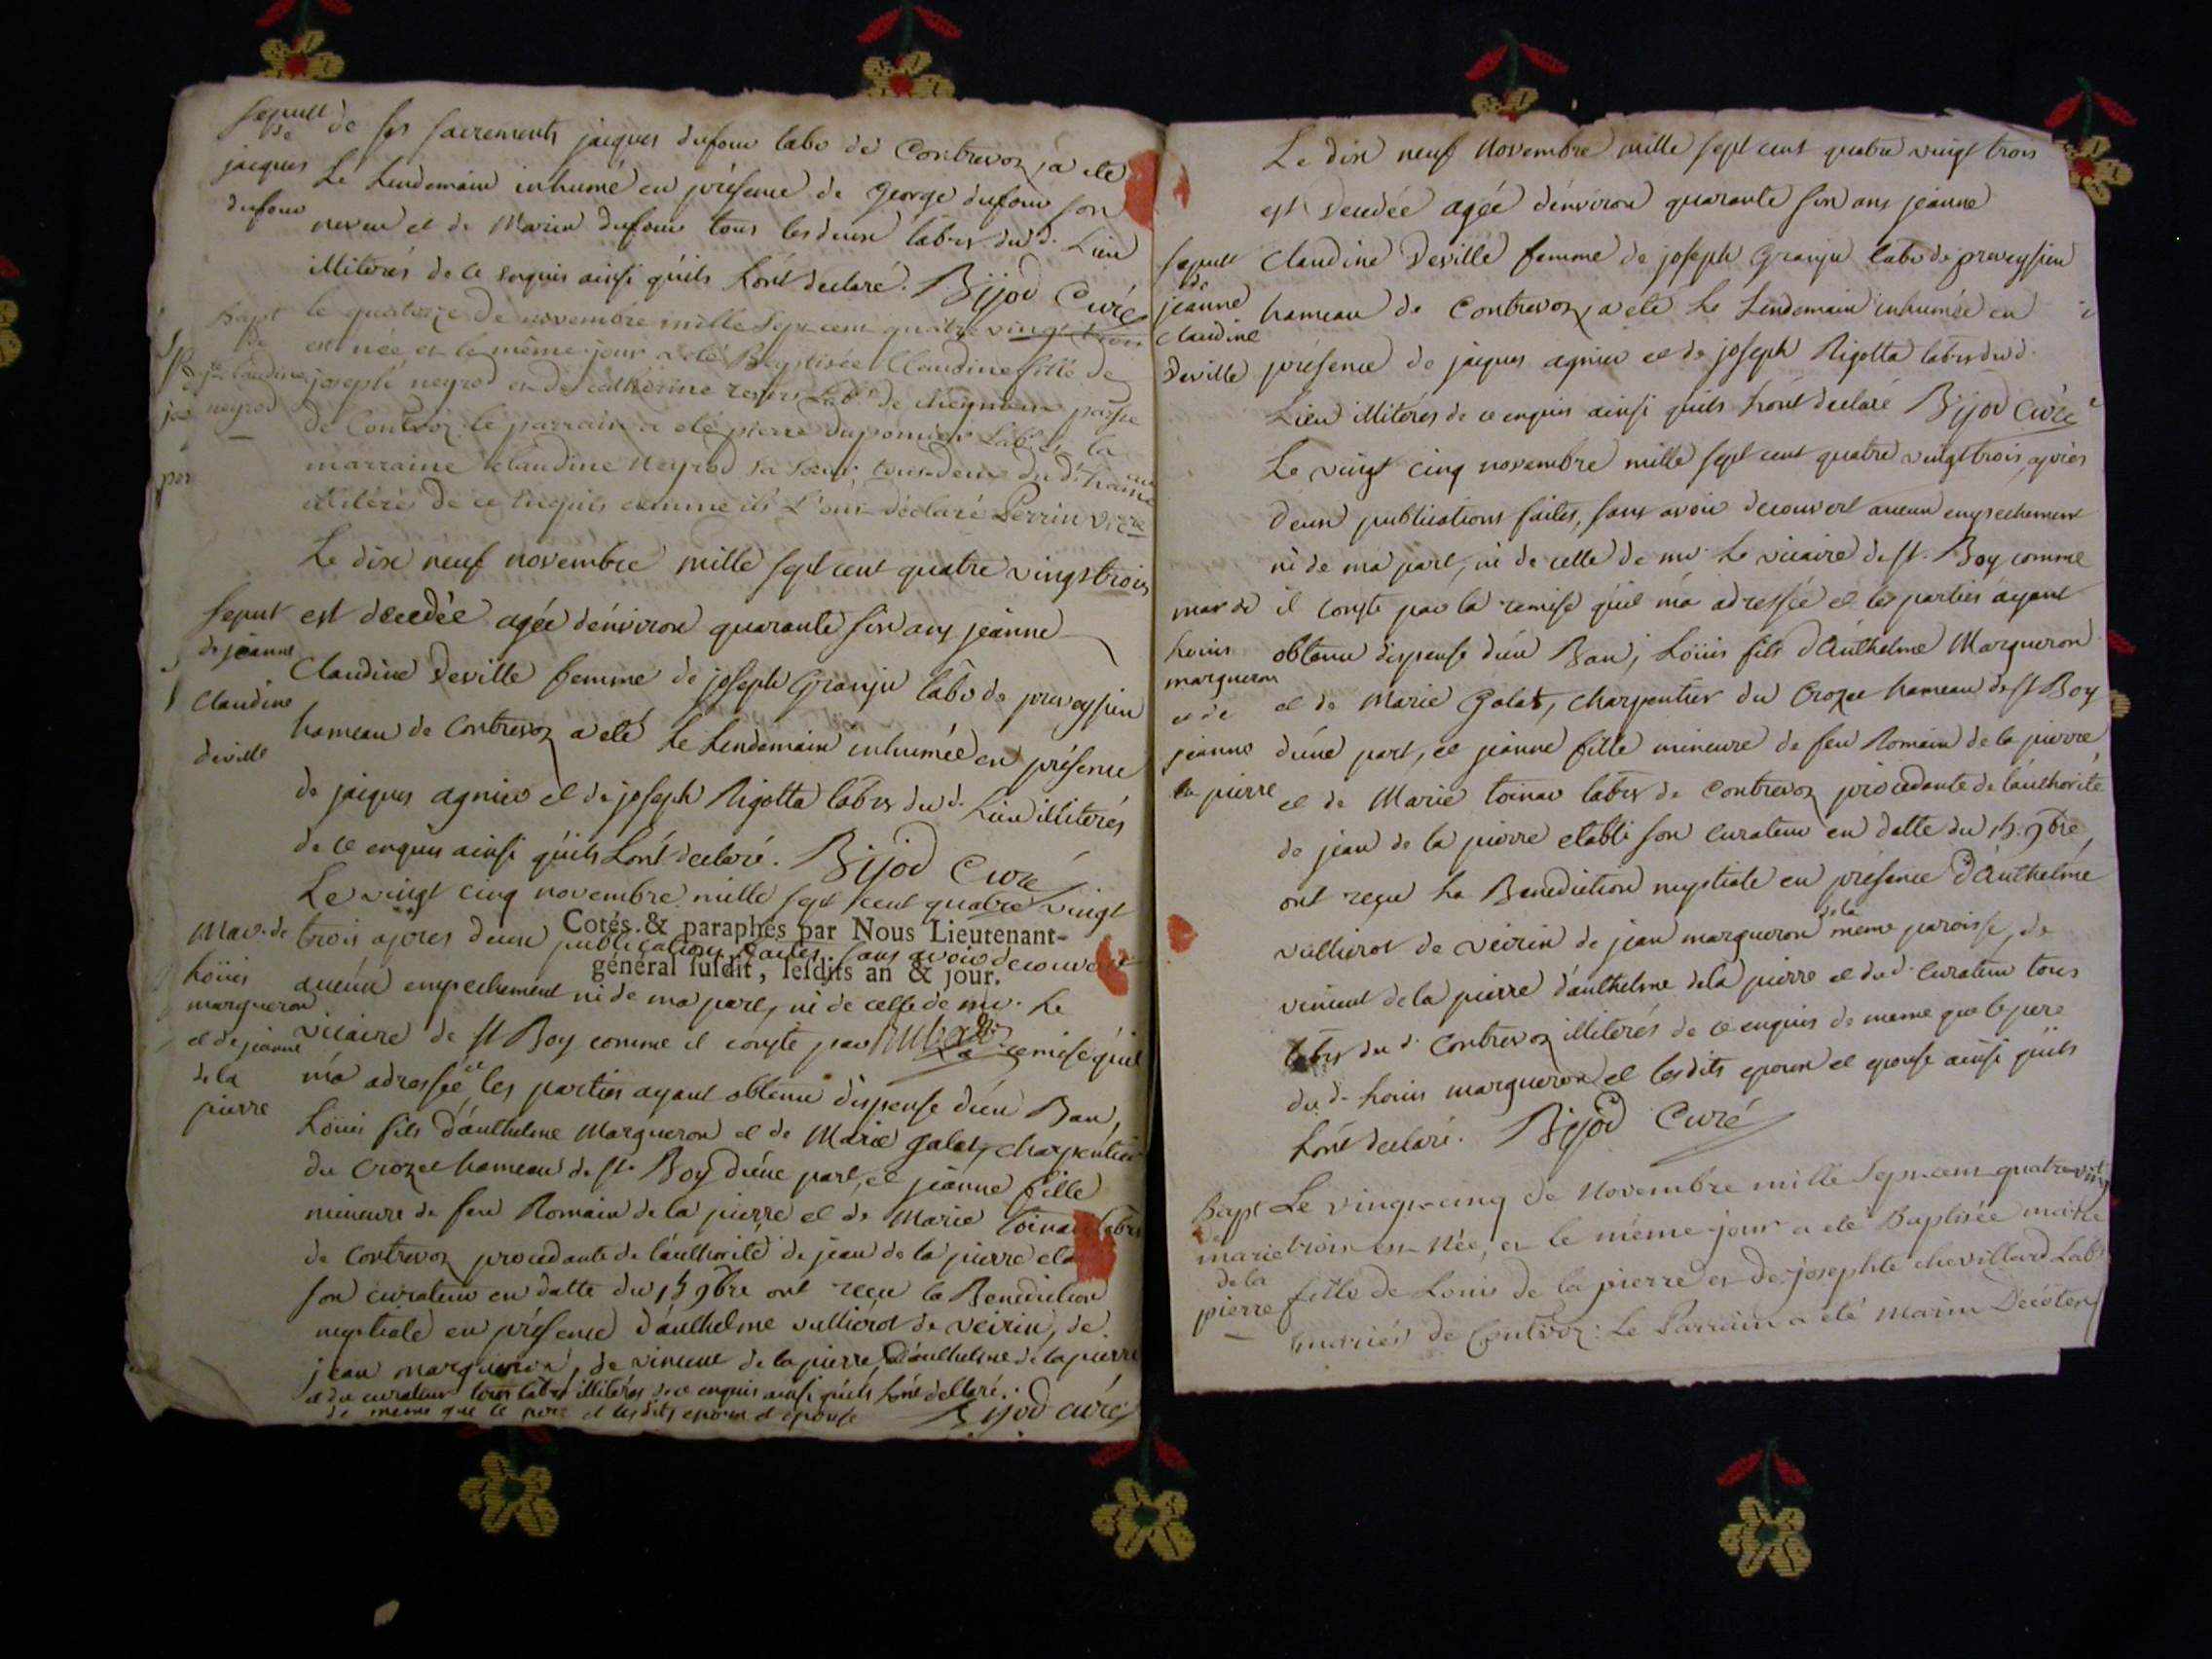 sepult de ses sacrements jacques dufour labr de Contrevoz, a ete
de
jacques
dufour
Le Lendemain inhumé en présence de George dufour son
neveu et de Marin dufour tous les deux labrs du d. Lieu
illiterés de ce enquis ainsi qu'ils L'ont declaré. Bijod Curé
Bapt
de
claudine
neyrod
le quatorze de novembre mille Sept cent quatre vingt trois
est née, et le même jour a eté Baptisée Claudine fille de
joseph neyrod et de catherine Labrs de cheignieu parsse
de Contvoz. le parrain a eté pierre dupomier Labr et la
marraine claudine Neyrod sa soeur, tous deux du dt hameau
illitérés de ce Enquis comme ils L'ont déclaré Perrin vicre
Le dix neuf novembre mille sept cent quatre vingts trois
sepult
de jeanne
Claudine
deville
est decedée agée d'environ quarante six ans jeanne
Claudine Deville femme de joseph Granju labr de preveyzieu
hameau de Contrevoz a eté Le Lendemain inhumée en présence
de jacques agnier et de joseph Rigotta labrs du d. Lieu illiterés
de ce enquis ainsi qu'ils L'ont declaré. Bijod Curé
Le vingt cinq novembre mille sept cent quatre vingt
Mar. de
Loüis
margueron
et de jeanne
de la
pierre
trois apres deux publications faites, sans avoir decouvert
Cotés & paraphés par Nous Lieutenant-
général susdit, lesdits an & jour.
aucun empechement ni de ma part, ni de celle de mr. Le
vicaire de st Boy comme il conste par La remise qu'il
m'a adressée et les parties ayant obtenu dispense d'un Ban,
Loüis fils d'anthelme Margueron et de Marie galat, charpentier
du Crozet hameau de st. Boy d'une part, et jeanne fille
mineure de feu Romain de la pierre et de Marie toinar labrs
de Contrevoz procedante de l'authorité de jean de la pierre
son curateur en datte du 15 9bre ont reçu la Benediction
nuptiale en présence d'anthelme vullierod de veirin, de
jean margueron, de vincent de la pierre, d'anthelme de la pierre
et du curateur tous labrs illiterés de ce enquis ainsi qu'ils L'ont declaré.
de meme que le pere et les dits epoux et epouse Bijod curé
Le dix neuf Novembre mille sept cent quatre vingt trois
est decedée agée d'environ quarante six ans jeanne
sepult
de
jeanne
Claudine
Deville
Claudine Deville femme de joseph Granju labr de preveyzieu
hameau de Contrevoz, a eté Le Lendemain inhumée en
présence de jacques agnier et de joseph Rigotta labrs du d.
Lieu illiterés de ce enquis ainsi qu'ils L'ont declaré Bijod Curé
Le vingt cinq novembre mille sept cent quatre vingt trois, apres
deux publications faites, sans avoir decouvert aucun empechement
ni de ma part, ni de celle de mr. Le vicaire de st. Boy comme
mar de
Louis
margueron
et de
jeanne
la pierre
il conste par la remise qu'il m'a adressée et les parties ayant
obtenu dispense d'un Ban; Loüis fils d'Anthelme Margueron
et de Marie Galat, charpentier du Crozet hameau de st Boy
d'une part, et jeanne fille mineure de feu Romain de la pierre
et de Marie toinar labrs de Contrevoz procedante de l'authorité
de jean de la pierre etabli son curateur en datte du 15. 9bre,
ont reçu La Benediction nuptiale en présence d'Anthelme
vullierod de veirin de jean margueron de la même paroisse, de
vincent de la pierre d'anthelme de la pierre et du d. curateur tous
labrs du d. Contrevoz illiterés de ce enquis de meme que le pere
du d. Louis margueron et les dits epoux et epouse ainsi qu'ils
L'ont declaré. Bijod Curé
Bapt
de
marie
de la
pierre
Le vingt-cinq de Novembre mille Sept-cent quatre vingt
trois est Née, et le même jour a eté Baptisée marie
fille de Louis de la pierre et de josephte chevillard Labrs
mariés de Contvoz: Le Parrain a été Marin Decoten